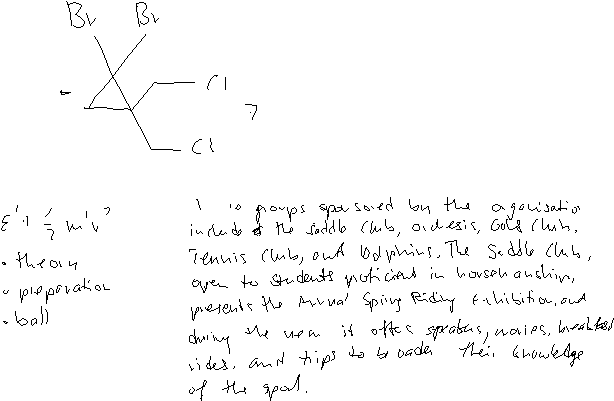 Br Br
Cl
Cl
• theory
• preparation
• ball
groups sponsored by the organisation
include the Saddle Club, orchesis, Golf Club,
Tennis Club, and Dolphins. The Saddle Club,
open to students proficient in horsemanship,
presents the Annual Spring Riding Exhibition, and
during the year it offers speakers, movies, breakfast
rides, and trips to broaden their knowledge
of the sport.